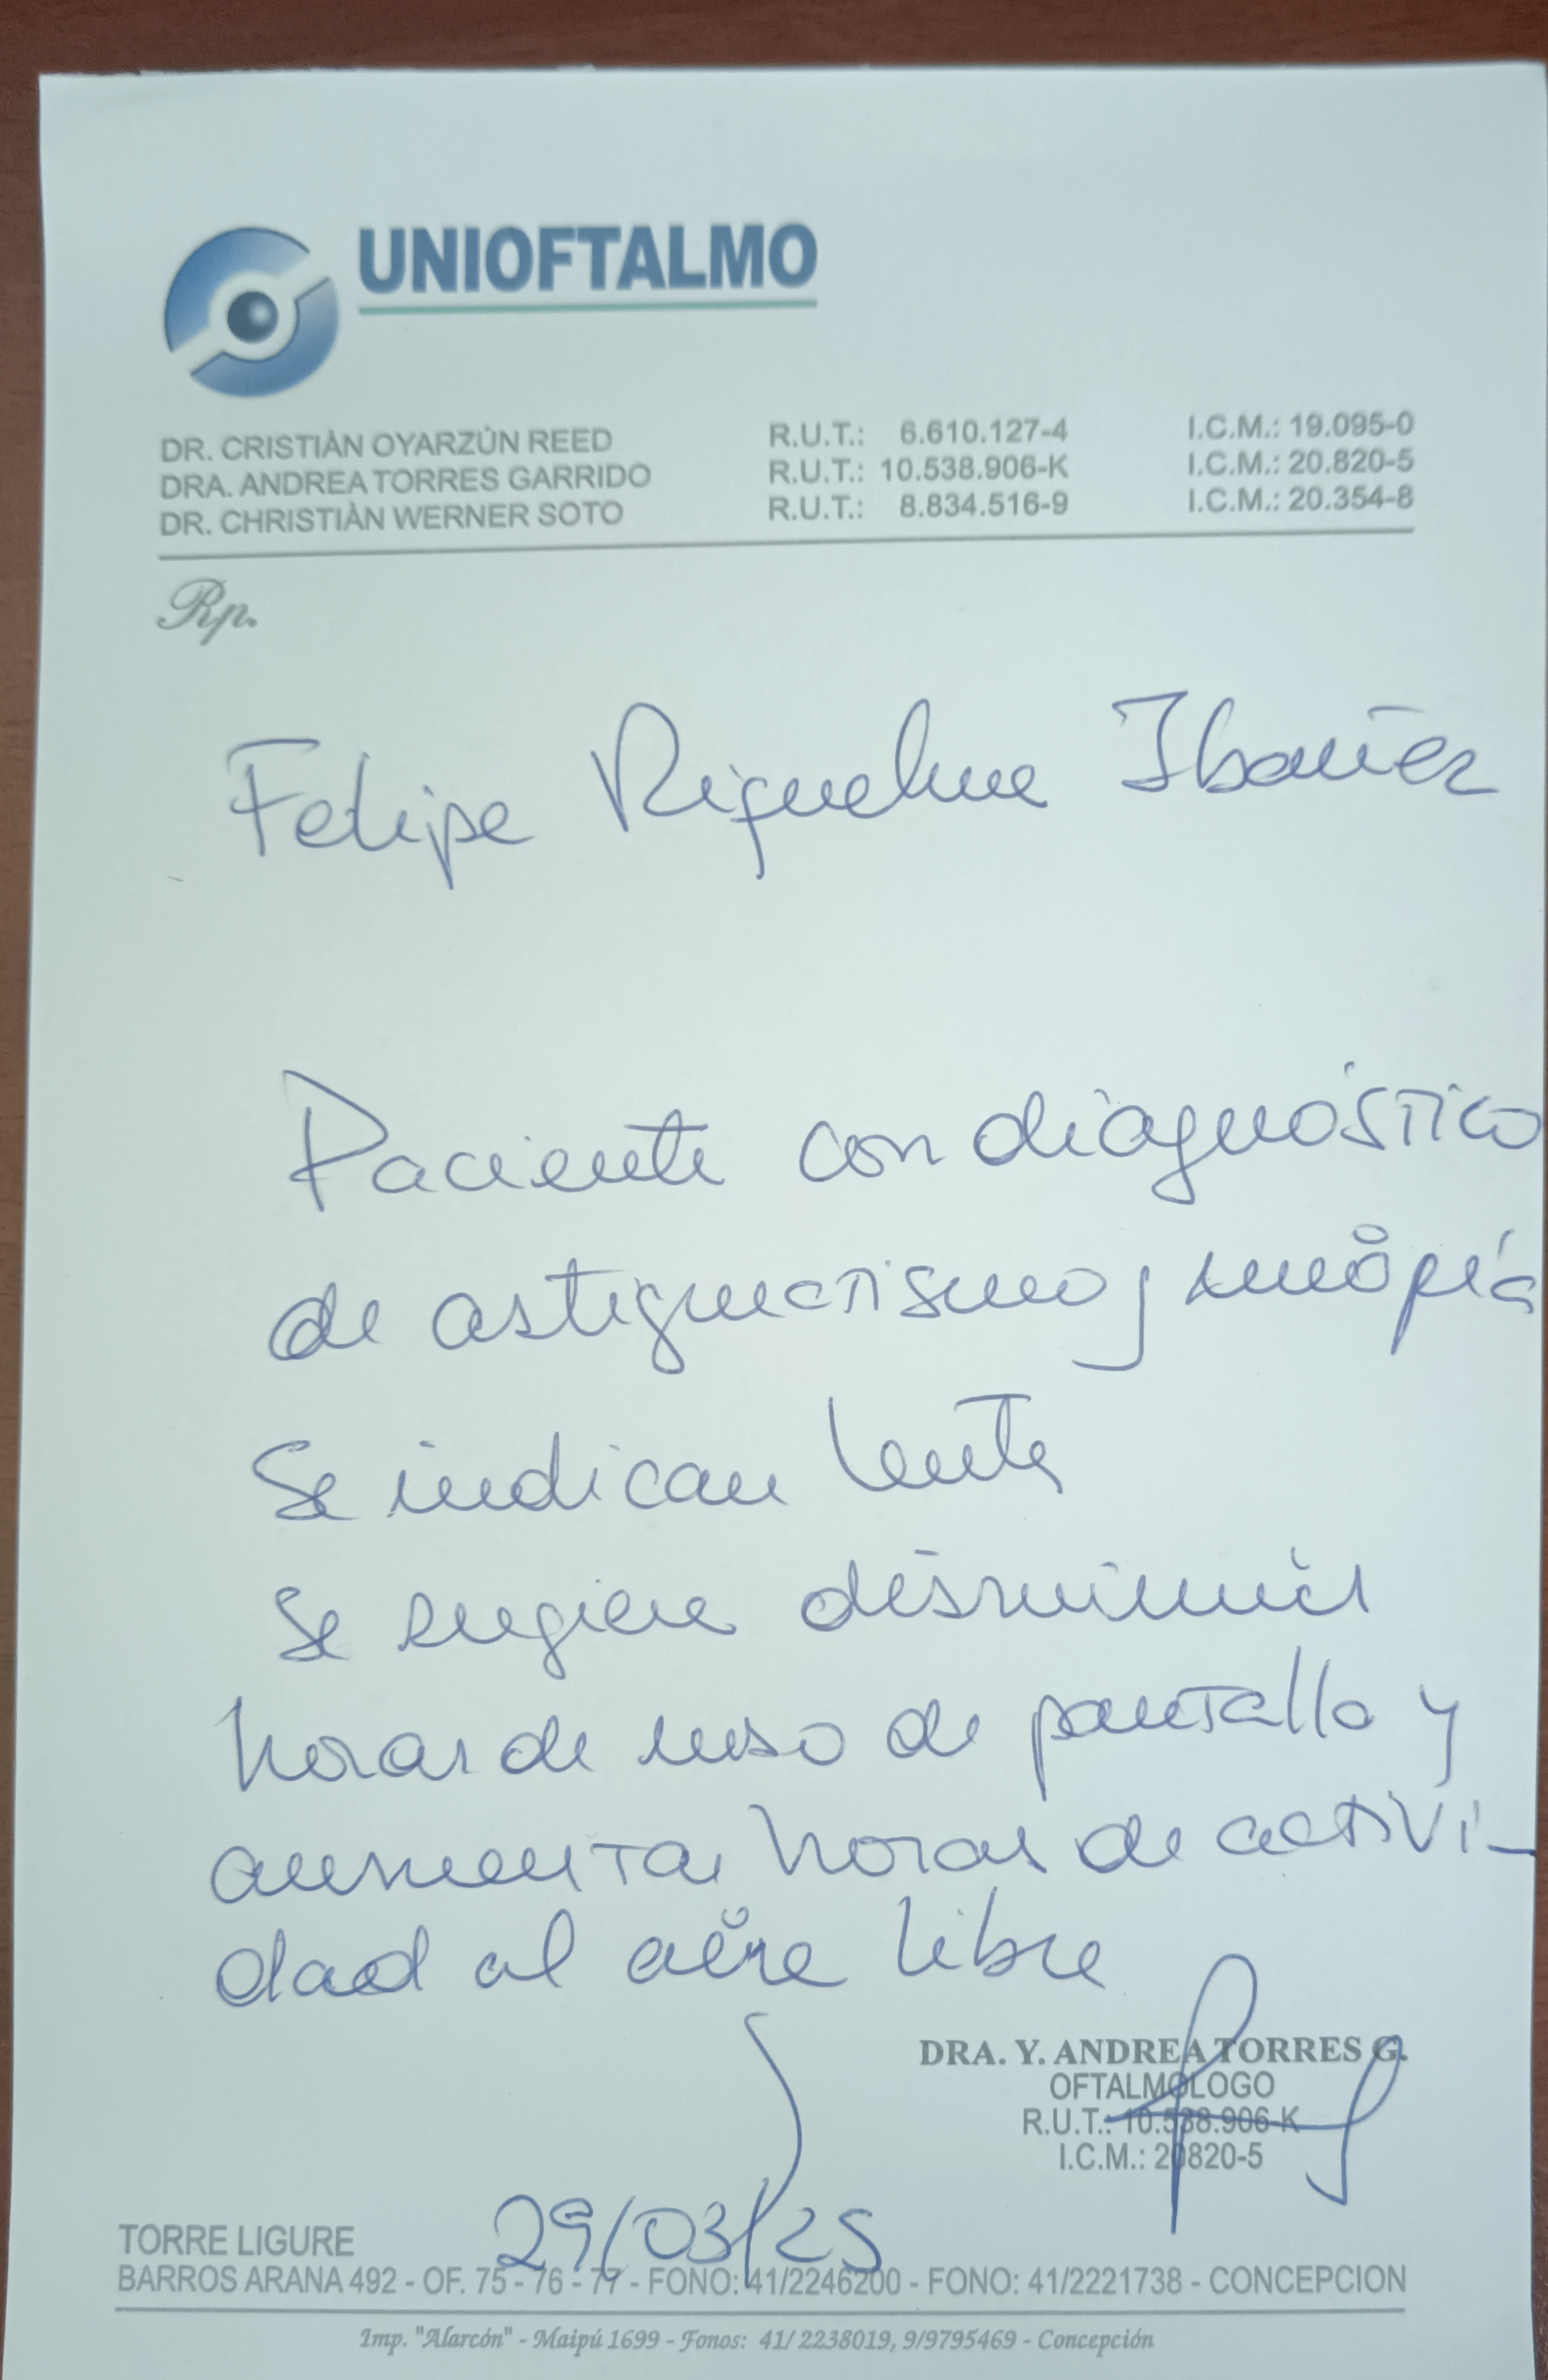 UNIOFTALMO
DR. CRISTIÀN OYARZÚN REED R.U.T.: 6.610.127-4 I.C.M.: 19.095-0
DRA. ANDREA TORRES GARRIDO R.U.T.: 10.538.906-K I.C.M.: 20.820-5
DR. CHRISTIÀN WERNER SOTO R.U.T.: 8.834.516-9 I.C.M.: 20.354-8
Rp.
Felipe Riquelme Ibañez
Paciente con diagnóstico
de astigmatismo y miopía
Se indican lentes
Se sugiere disminuir
horas de uso de pantalla y
aumentar horas de activi-
dad al aire libre
DRA. Y. ANDREA TORRES G.
OFTALMÓLOGO
R.U.T.: 10.538.906-K
I.C.M.: 20820-5
29/03/25
TORRE LIGURE
BARROS ARANA 492 - OF. 75 - 76 - 77 - FONO: 41/2246200 - FONO: 41/2221738 - CONCEPCION
Imp. "Alarcón" - Maipú 1699 - Fonos: 41/ 2238019, 9/9795469 - Concepción